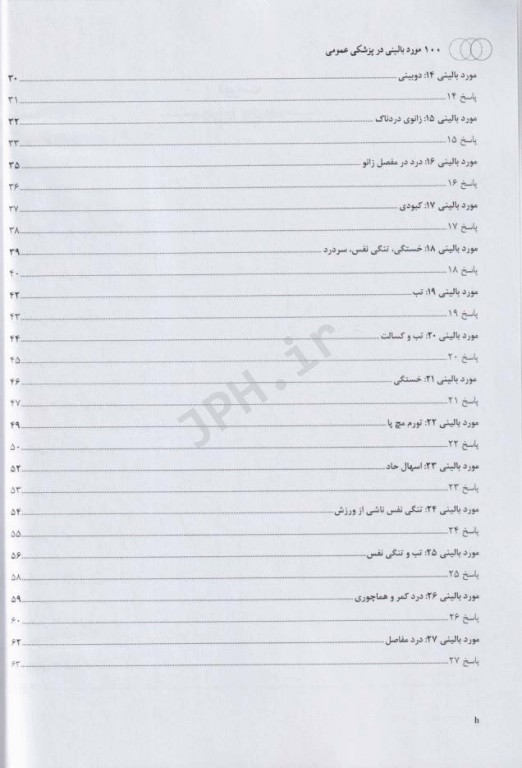 ۱۰۰ مورد بالینی در پزشکی عمومی
مورد بالینی ۱۴: دوبینی ۳۰
پاسخ ۱۴ ۳۱
مورد بالینی ۱۵: زانوی دردناک ۳۲
پاسخ ۱۵ ۳۳
مورد بالینی ۱۶: درد در مفصل زانو ۳۵
پاسخ ۱۶ ۳۶
مورد بالینی ۱۷: کبودی ۳۷
پاسخ ۱۷ ۳۸
مورد بالینی ۱۸: خستگی، تنگی نفس، سردرد ۳۹
پاسخ ۱۸ ۴۰
مورد بالینی ۱۹: تب ۴۲
پاسخ ۱۹ ۴۳
مورد بالینی ۲۰: تب و کسالت ۴۴
پاسخ ۲۰ ۴۵
مورد بالینی ۲۱: خستگی ۴۶
پاسخ ۲۱ ۴۷
مورد بالینی ۲۲: تورم مچ پا ۴۹
پاسخ ۲۲ ۵۰
مورد بالینی ۲۳: اسهال حاد ۵۲
پاسخ ۲۳ ۵۳
مورد بالینی ۲۴: تنگی نفس ناشی از ورزش ۵۴
پاسخ ۲۴ ۵۵
مورد بالینی ۲۵: تب و تنگی نفس ۵۶
پاسخ ۲۵ ۵۸
مورد بالینی ۲۶: درد کمر و هماچوری ۵۹
پاسخ ۲۶ ۶۰
مورد بالینی ۲۷: درد مفاصل ۶۲
پاسخ ۲۷ ۶۳
h
JPH.ir